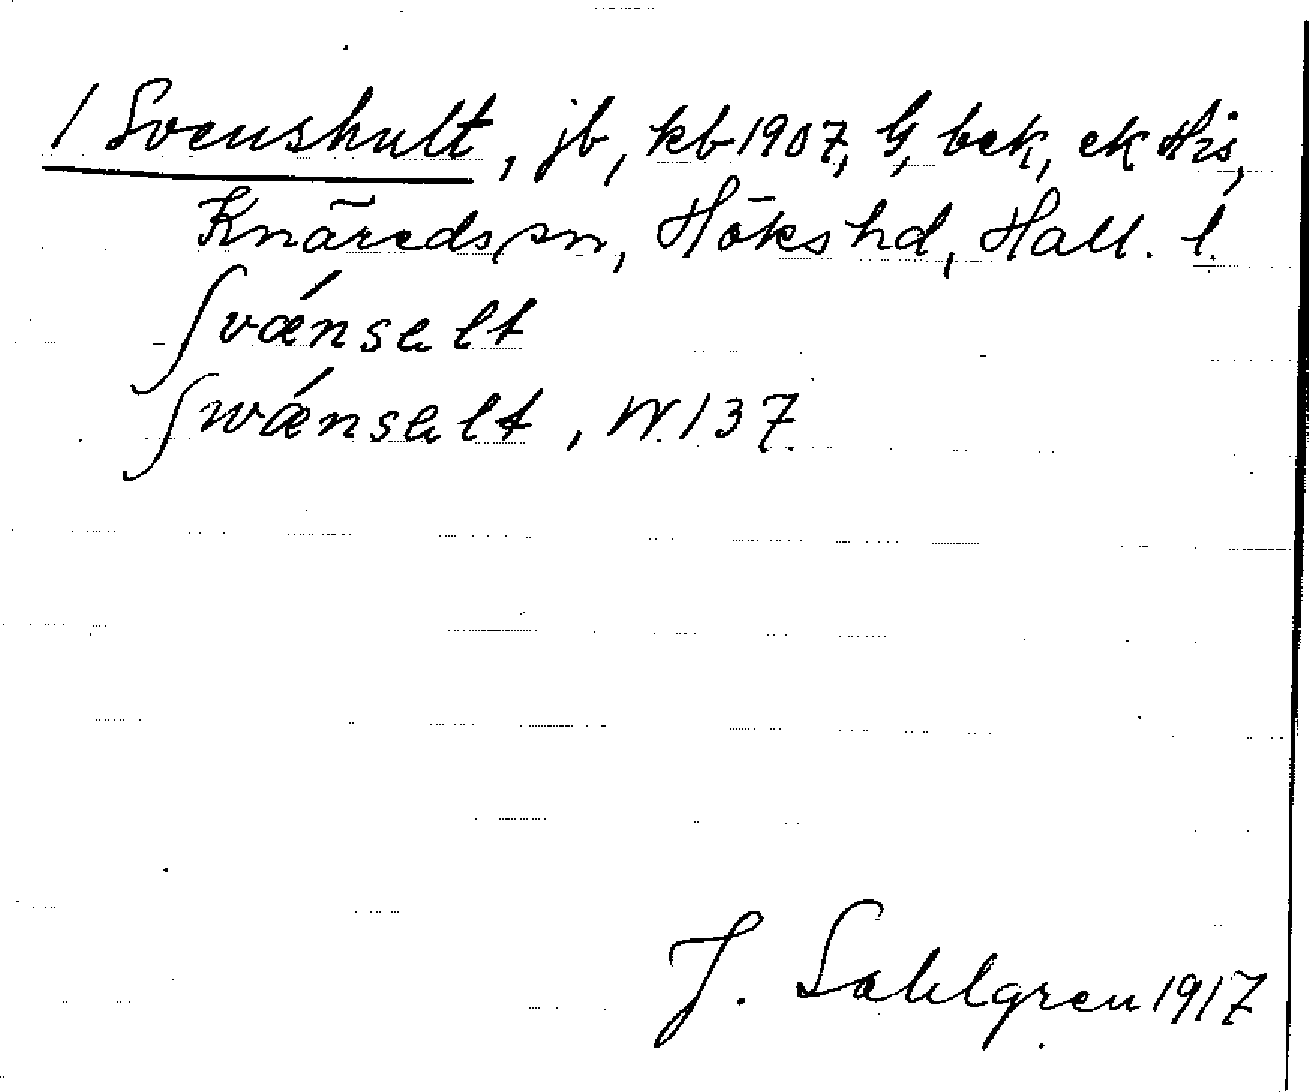 / Svenshult, jb, kb 1907, G, bek, ek His,
Knäreds sn, Höks hd, Hall. l.
ʃvǽnsalt
ʃwǽnsalt, N. 137.
J. Sahlgren 1917